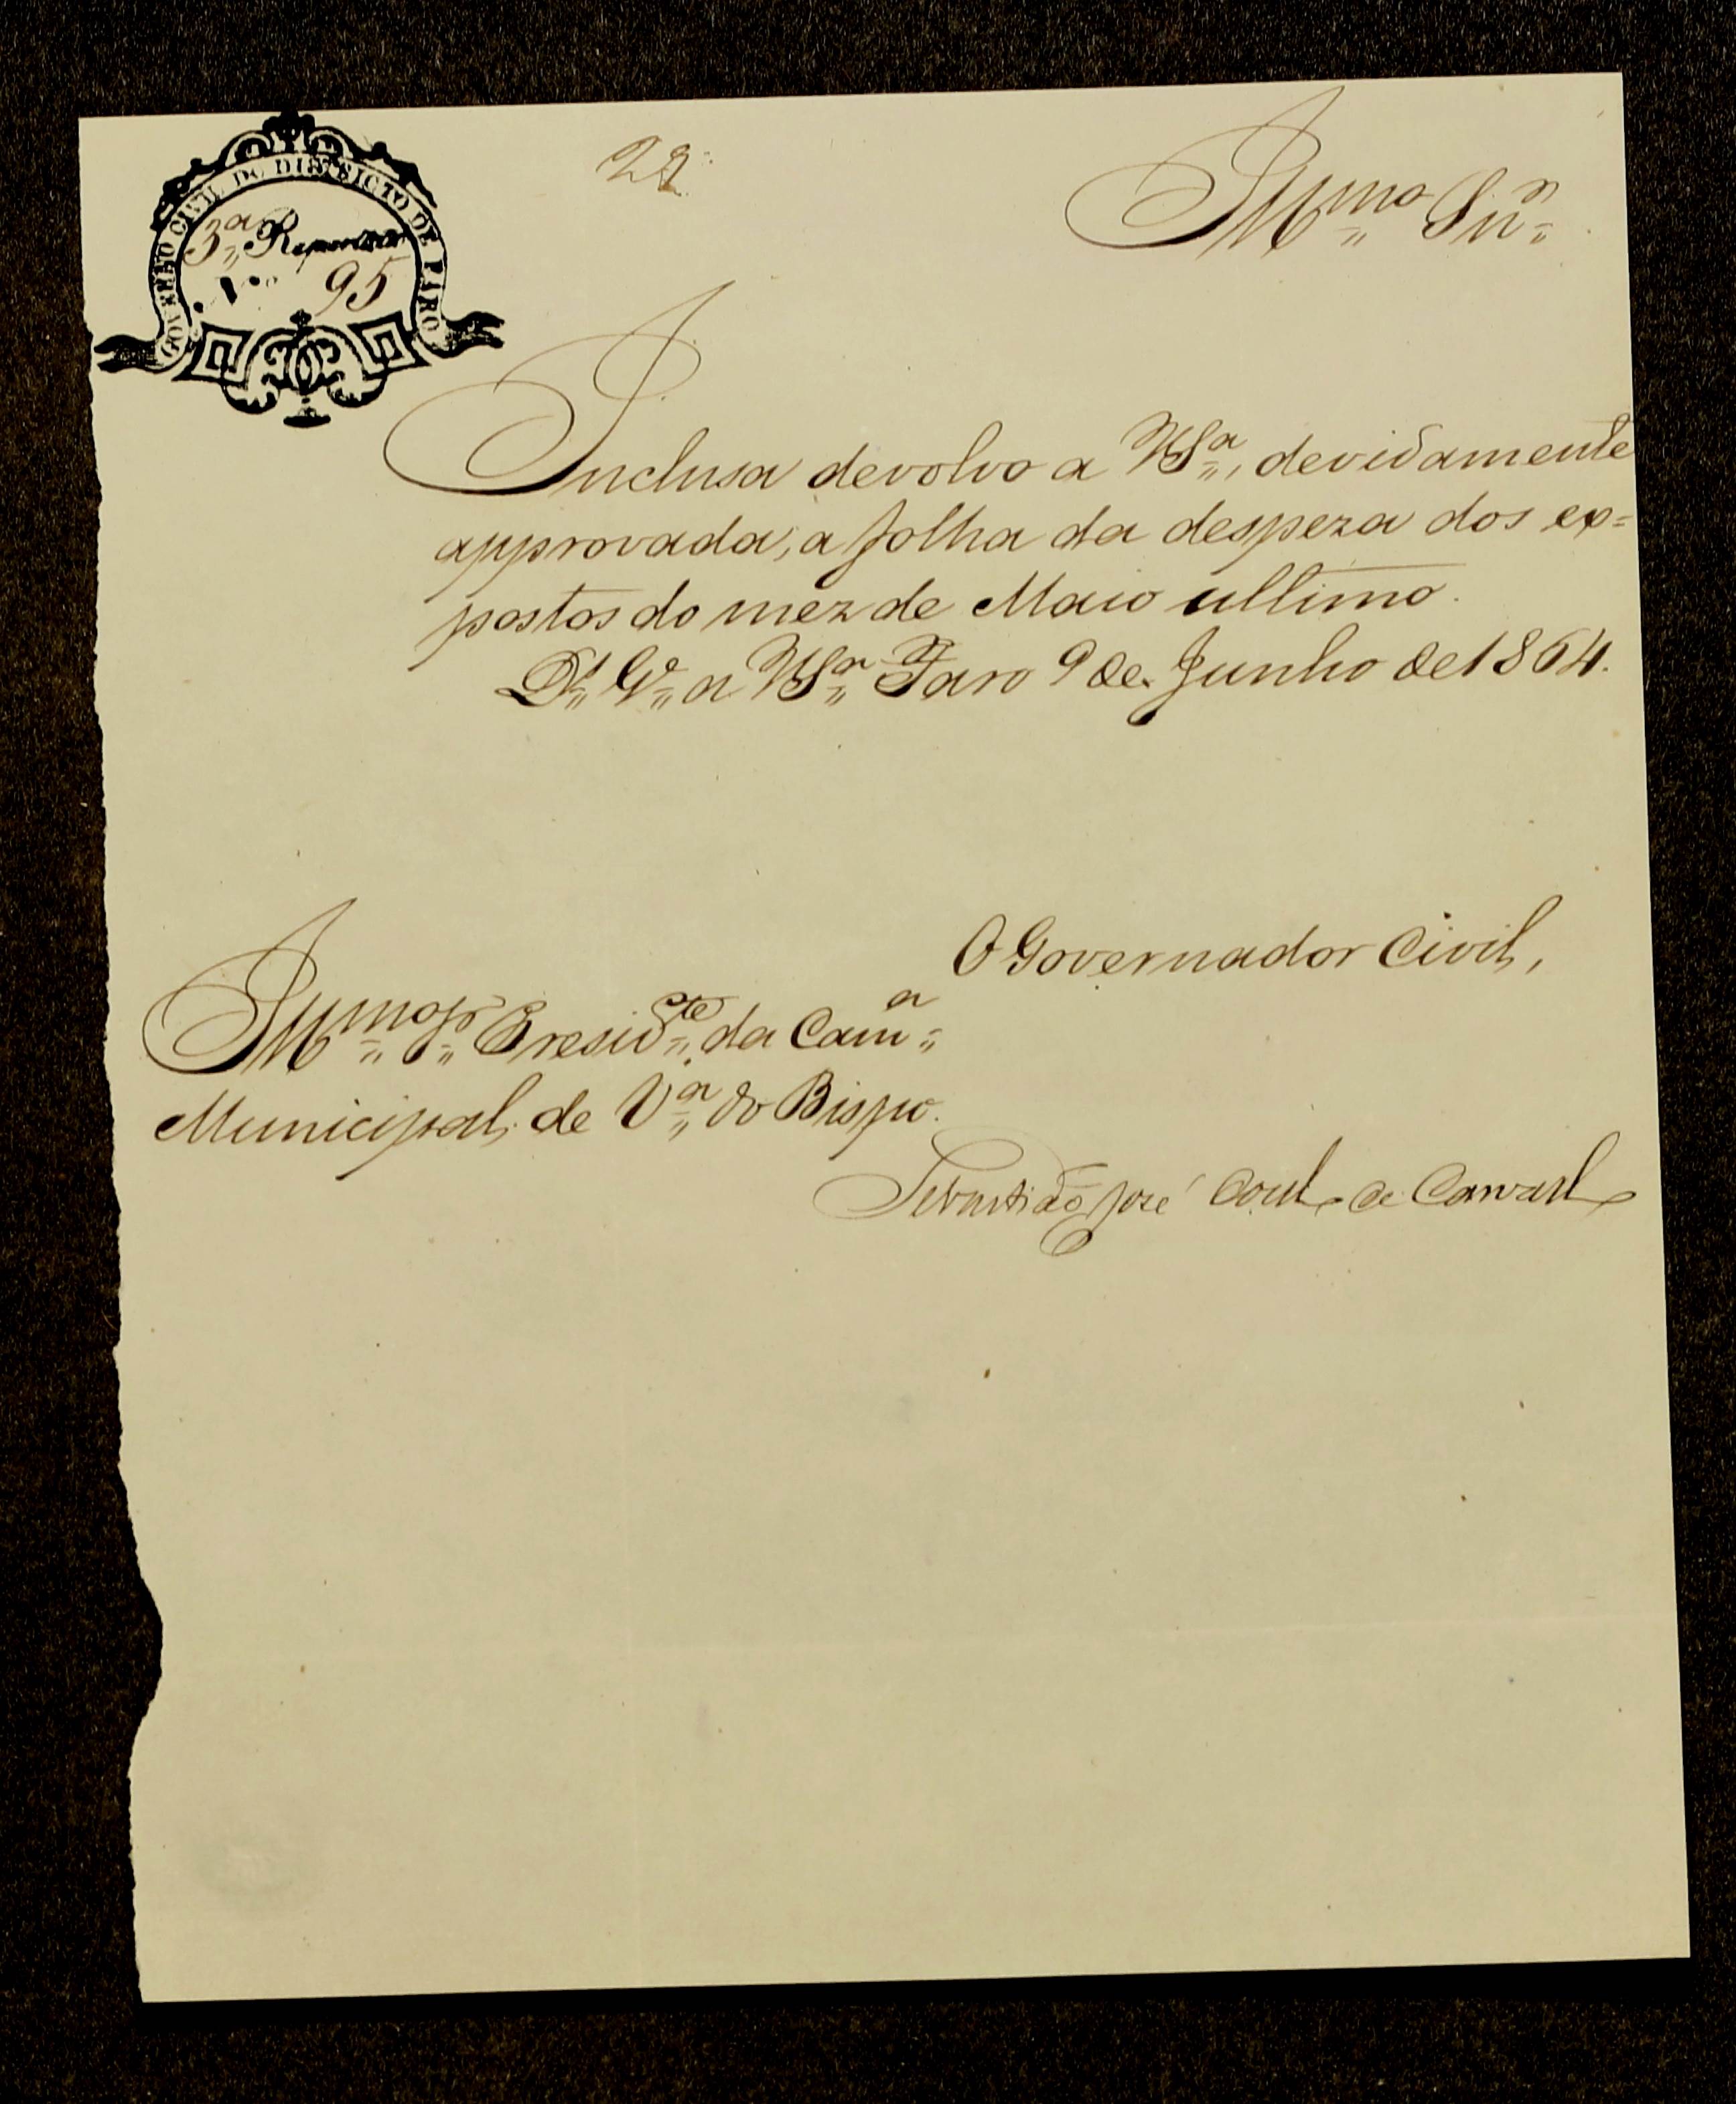 GOVERNO CIVIL DO DISTRICTO DE FARO
3.ª Repartição
N.º 95
22
Illmo Snr.
Inclusa devolvo a VSª, devidamente
approvada, a folha da despeza dos ex=
postos do mez de Maio ultimo.
Ds. Ge. a VSª Faro 9 de Junho de 1864.
O Governador Civil,
Illmo Sr. Presidte da Camª
Municipal de Vª do Bispo.
Sebastião José Coelho de Carvalho